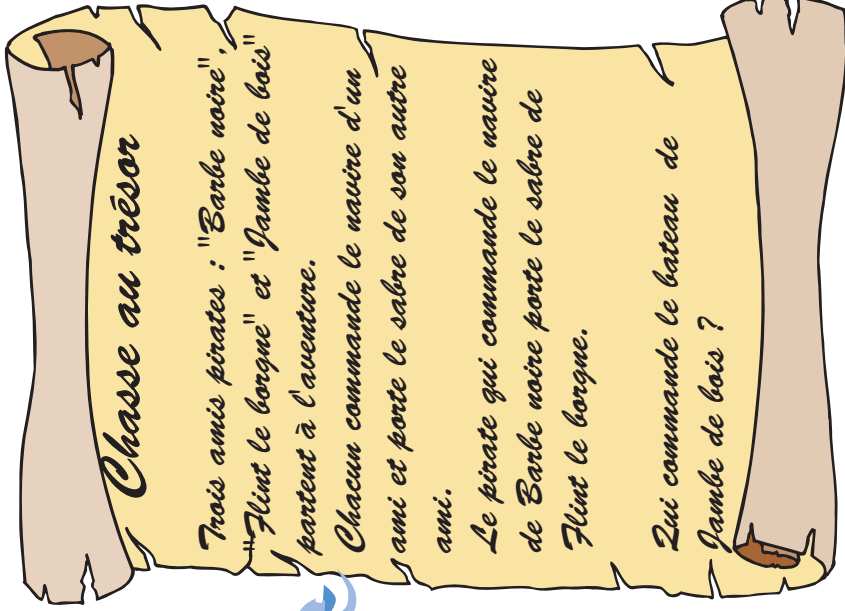 Chasse au trésor
Trois amis pirates : "Barbe noire",
"Flint le borgne" et "Jambe de bois"
partent à l'aventure.
Chacun commande le navire d'un
ami et porte le sabre de son autre
ami.
Le pirate qui commande le navire
de Barbe noire porte le sabre de
Flint le borgne.
Qui commande le bateau de
Jambe de bois ?